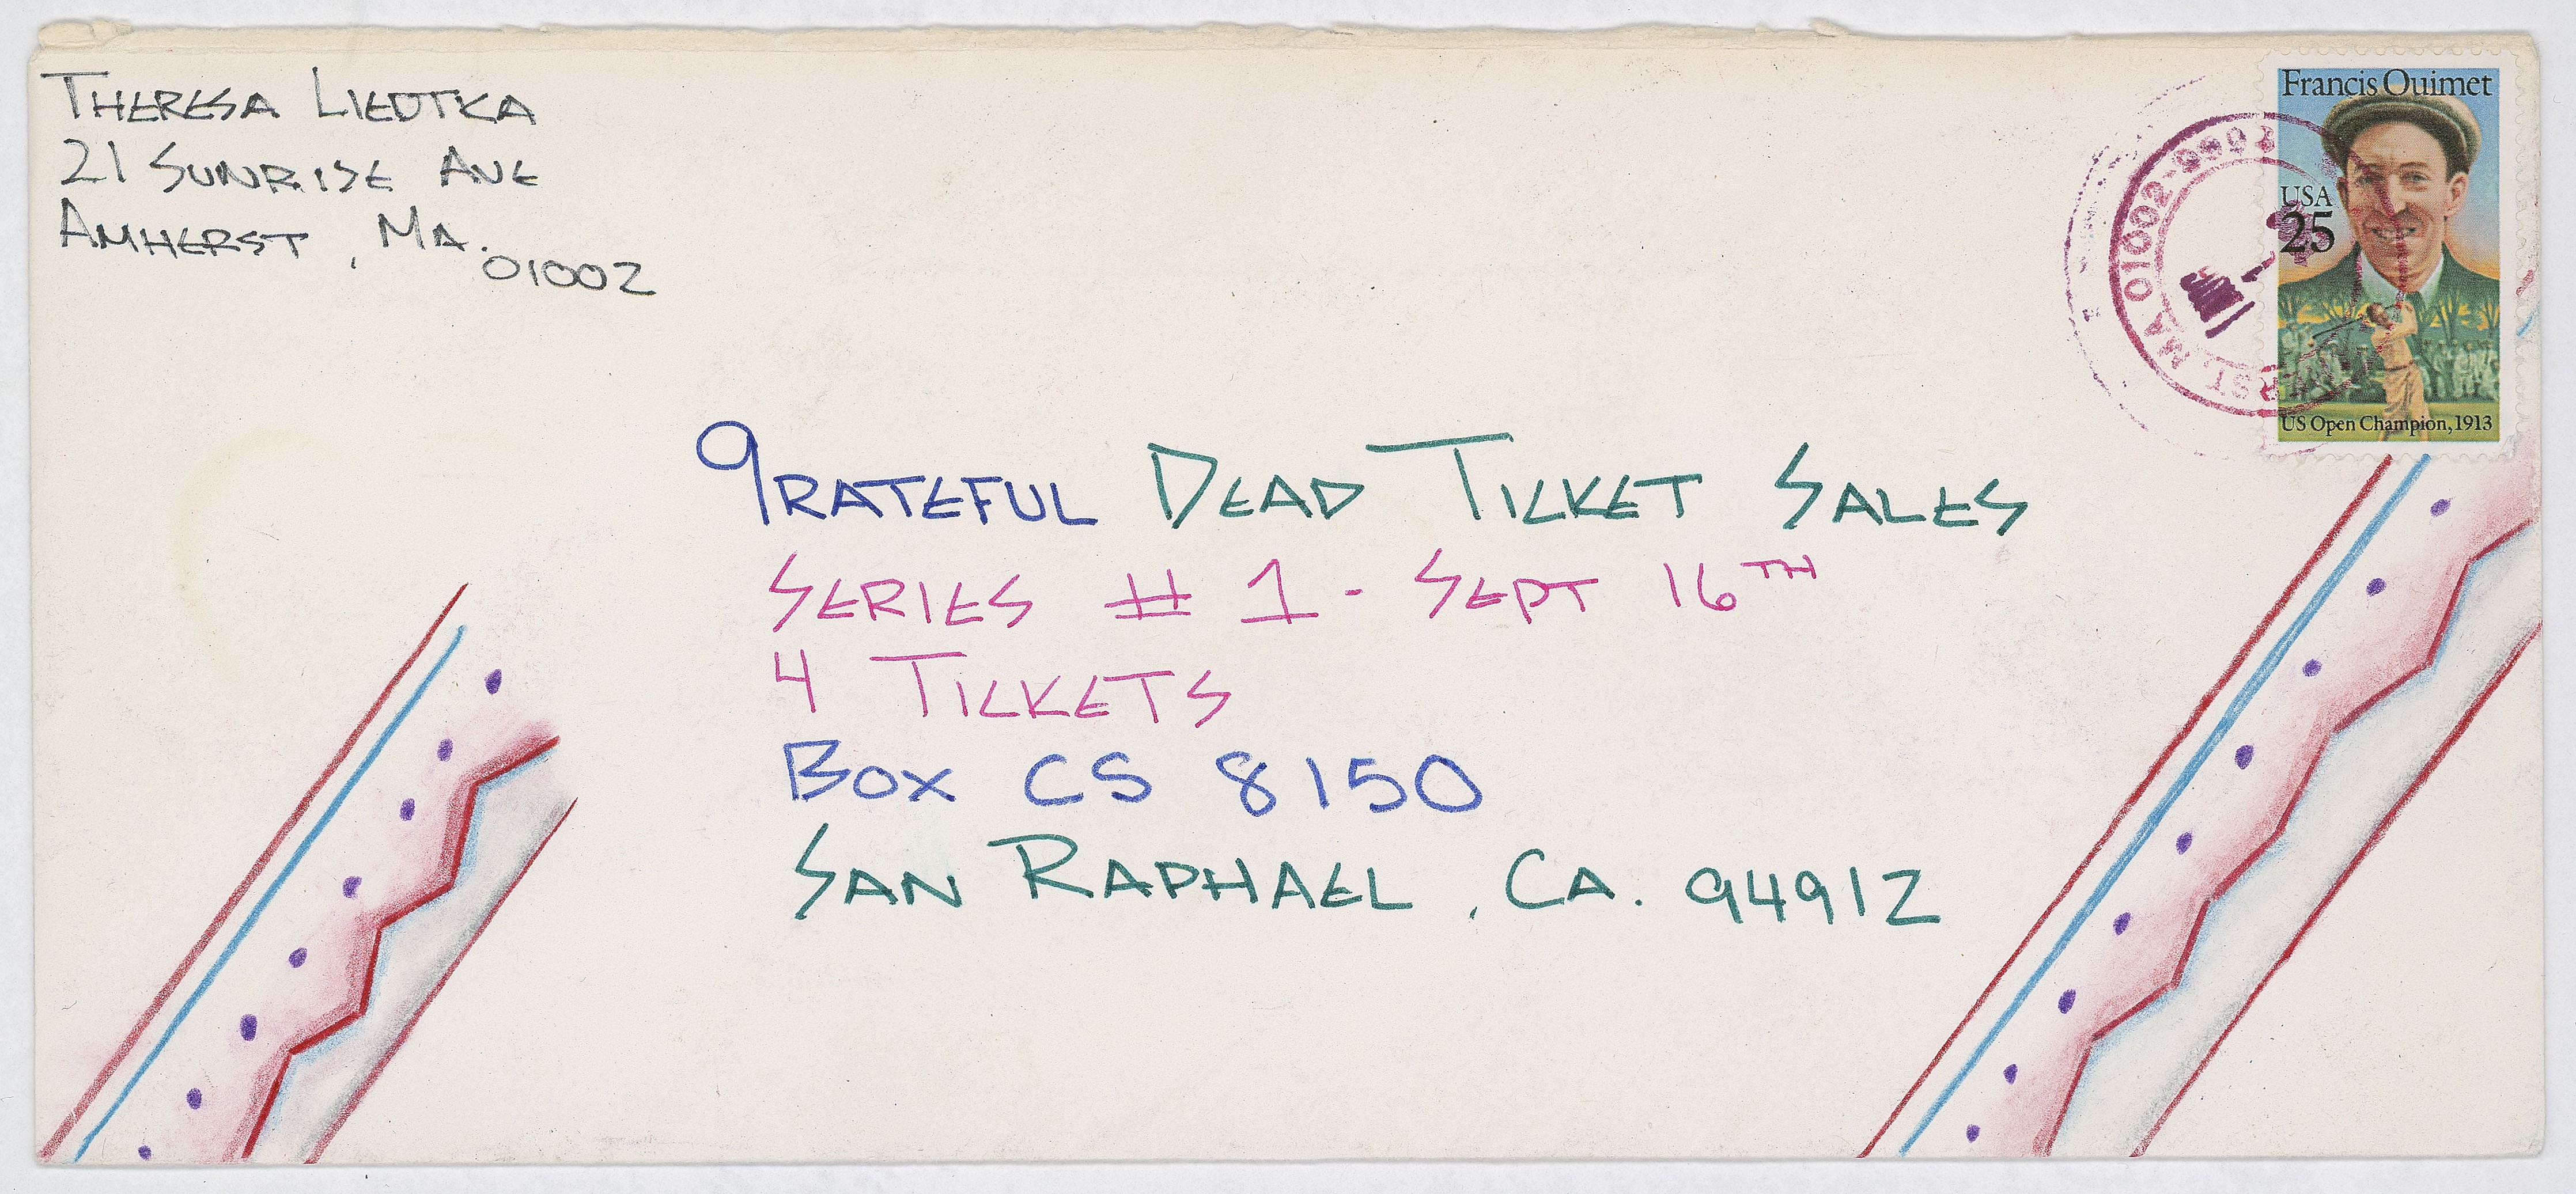 THERESA LIEDTKA
21 SUNRISE AVE
AMHERST, MA.
01002
Francis Ouimet
USA
25
US Open Champion, 1913
RST, MA 01002-9992
GRATEFUL DEAD TICKET SALES
SERIES # 1 - SEPT 16TH
4 TICKETS
BOX CS 8150
SAN RAPHAEL, CA. 94912